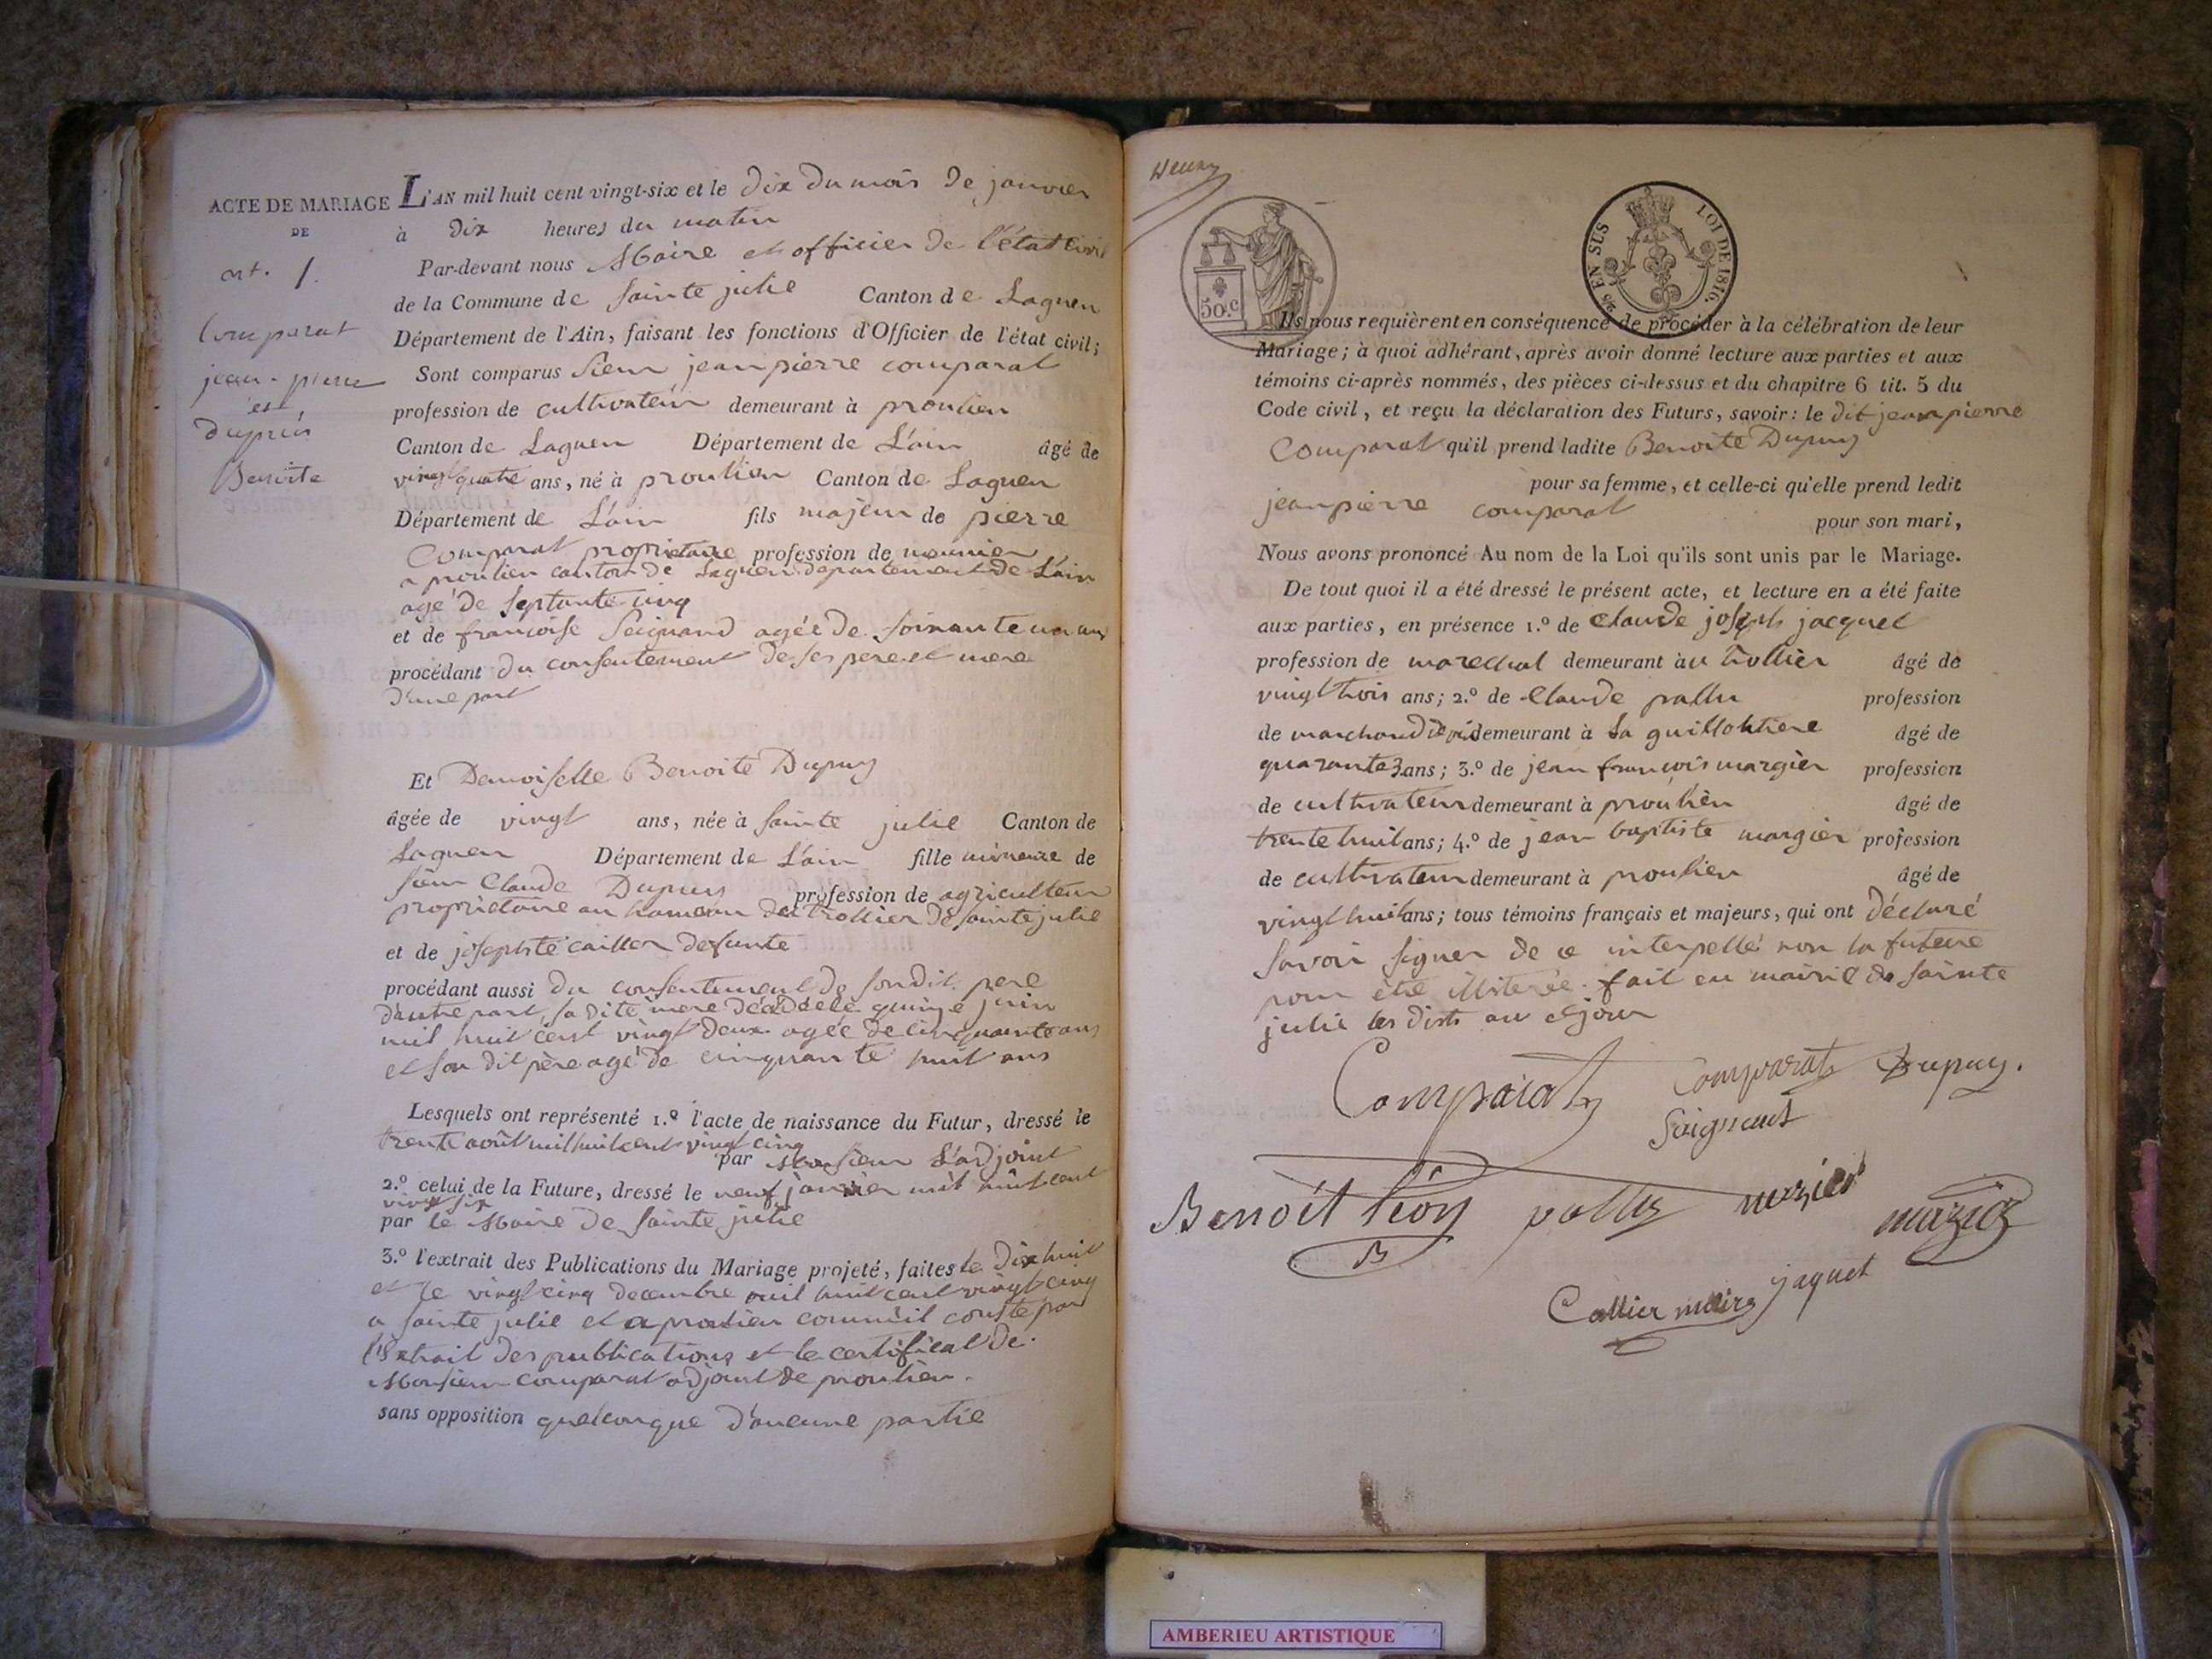 ACTE DE MARIAGE
DE
art. 1.
Comparat
jean-pierre
et
dupuis
Benoite
L'AN mil huit cent vingt-six et le dix du mois de janvier
à dix heures du matin
Par-devant nous Maire et officier de l'état civil
de la Commune de sainte julie Canton de Lagnieu
Département de l'Ain, faisant les fonctions d'Officier de l'état civil;
Sont comparus sieur jean pierre comparat
profession de cultivateur demeurant à proulieu
Canton de Lagneu Département de L'ain âgé de
vingt quatre ans, né à proulieu Canton de Lagneu
Département de L'ain fils majeur de pierre
Comparat propriétaire profession de meunier
a proulieu canton de Lagneu departement de L'ain
agé de septante cinq
et de francoise Seignard agée de soixante un ans
procédant du consentement de ses pere et mere
d'une part
Et Demoiselle Benoite Dupuy
âgée de vingt ans, née à sainte julie Canton de
Lagneu Département de L'ain fille mineure de
sieur Claude Dupuy profession de agriculteur
propriétaire au hameau du trollier de sainte julie
et de josephte caillon defunte
procédant aussi du consentement de son dit pere
d'autre part, sa dite mere décédée le quinze juin
mil huit cent vingt deux agée de cinquante ans
et son dit père agé de cinquante huit ans
Lesquels ont représenté 1.º l'acte de naissance du Futur, dressé le
trente août mil huit cent vingt cinq
par Monsieur L'adjoint
2.º celui de la Future, dressé le neuf janvier mil huit cent
vingt six
par le Maire de sainte julie
3.º l'extrait des Publications du Mariage projeté, faites le dix huit
et le vingt cinq decembre mil huit cent vingt cinq
a sainte julie et a proulieu comme il conste par
l'extrait des publications et le certificat de
Monsieur comparat adjoint de proulieu.
sans opposition quelconque d'aucune partie
50.c
25 EN SUS
LOI DE 1816.
Ils nous requièrent en conséquence de procéder à la célébration de leur
Mariage; à quoi adhérant, après avoir donné lecture aux parties et aux
témoins ci-après nommés, des pièces ci-dessus et du chapitre 6 tit. 5 du
Code civil, et reçu la déclaration des Futurs, savoir: le dit jean pierre
Comparat qu'il prend ladite Benoite Dupuy
pour sa femme, et celle-ci qu'elle prend ledit
jean pierre comparat pour son mari,
Nous avons prononcé Au nom de la Loi qu'ils sont unis par le Mariage.
De tout quoi il a été dressé le présent acte, et lecture en a été faite
aux parties, en présence 1.º de Claude joseph jacquet
profession de marechal demeurant à au trollier âgé de
vingt trois ans; 2.º de Claude pallu profession
de marchand demeurant à La guillottiere âgé de
quarante 3 ans; 3.º de jean francois margier profession
de cultivateur demeurant à proulieu âgé de
trente huit ans; 4.º de jean baptiste margier profession
de cultivateur demeurant à proulieu âgé de
vingt huit ans; tous témoins français et majeurs, qui ont déclaré
savoir signer de ce interpellé non la future
pour etre illiterée. fait en mairie de sainte
julie les dits an et jour
Comparat Comparat Dupuy.
Saignard
Benoit Léon pallu mazier mazier
B
Collier maire jaquet
AMBERIEU ARTISTIQUE